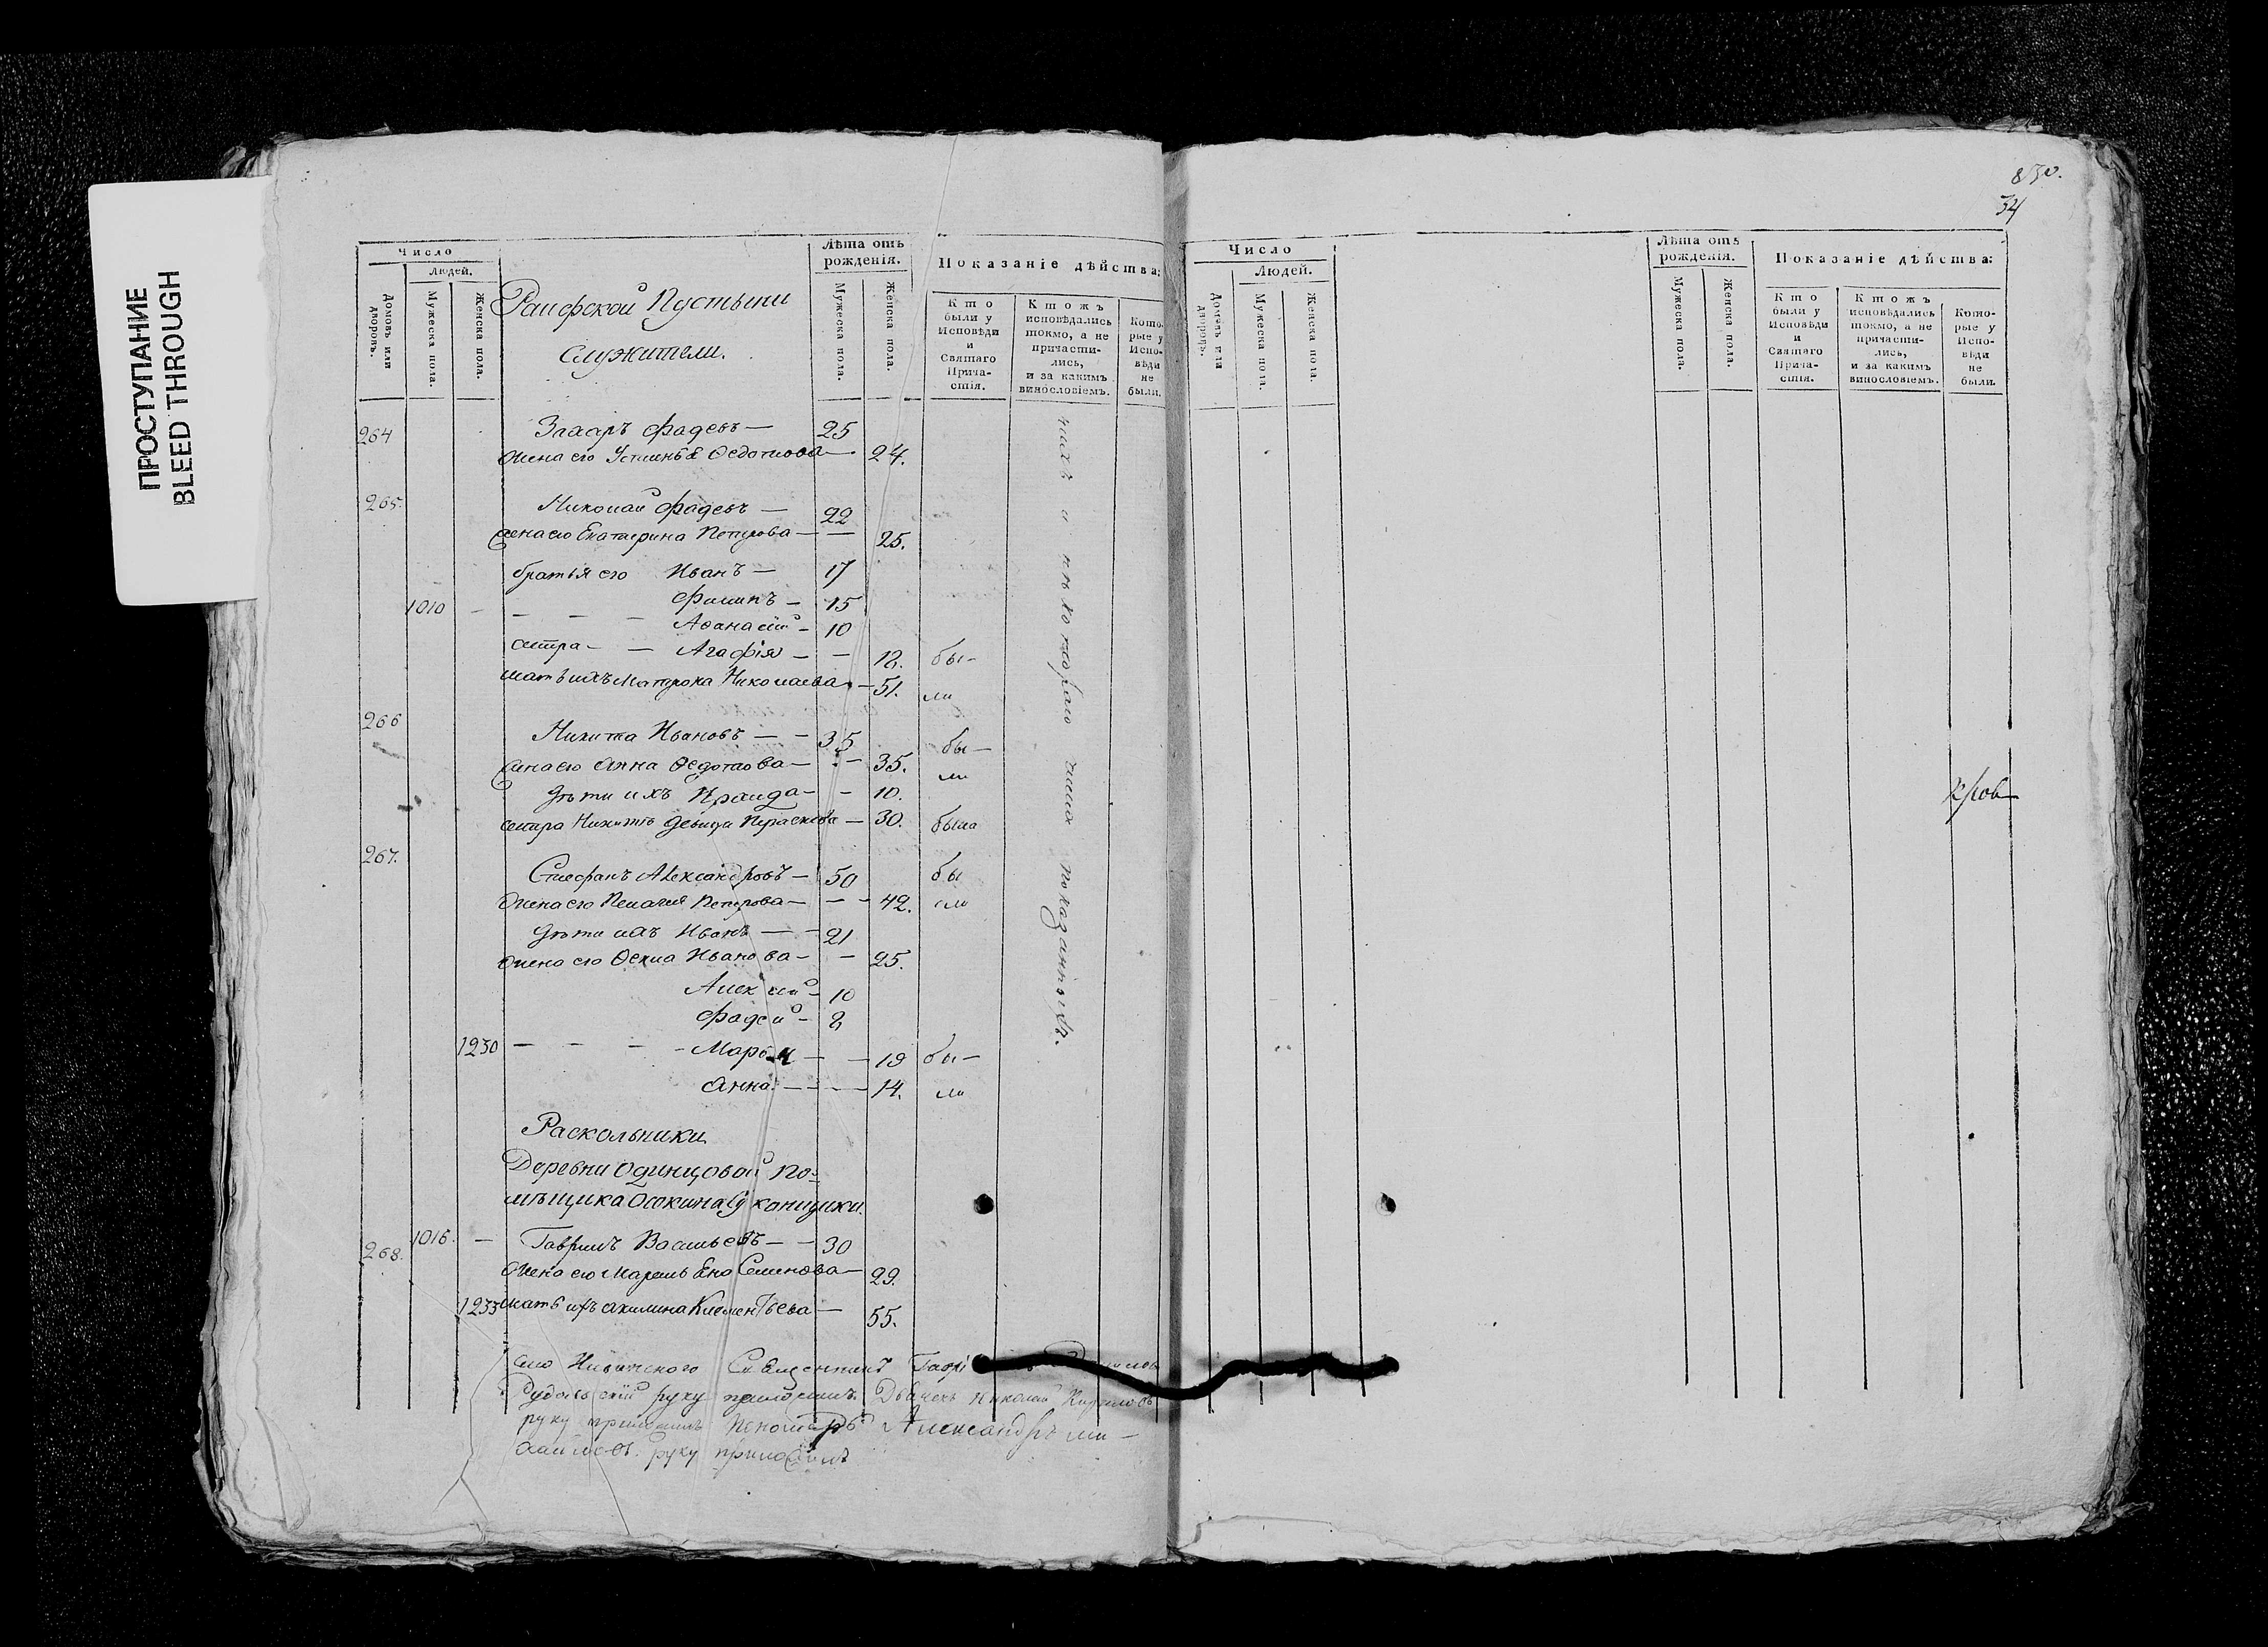 ПРОСТУПАНИЕ
BLEED THROUGH
Число
Людей.
Домовъ или дворовъ.
Мужеска пола.
Женска пола.
Раифской Пустыни
служители.
Лѣта отъ рожденія.
Мужеска пола.
Женска пола.
Показаніе дѣйства:
Кто были у Исповѣди и Святаго Причастія.
Ктожъ исповѣдались токмо, а не причастились, и за какимъ винословіемъ.
Которые у Исповѣди не были.
264 Захаръ Фадеевъ — 25
жена его Устинья Ѳедотова — 24.
265. Николай Фадеевъ — 22
жена его Екатерина Петрова — — 25.
братья его Иванъ — 17
1010 — — — — Филипъ — 15
Аѳанасій — 10
сестра — — Агафія — — 12. бы-
мать ихъ Матрона Николаева — 51. ли
266 Никита Ивановъ — — 35 бы —
жена его Анна Ѳедотова — — 35. ли
дѣти ихъ Ираида — — 10.
сестра Никиты девица Параскева — 30. была
267. Стефанъ Александровъ — 50 бы
жена его Пелагея Петрова — — — 42. ли
дѣти ихъ Иванъ — — 21
жена его Ѳекла Иванова — — 25.
Алексей — 10
Фадей — 8
1230 — — — — Марья — — 19 бы —
Анна — — — 14. ли
Раскольники
Деревни Одинцовой по=
мѣщика Осокина
268. 1016. — Гаврилъ Васильевъ — — 30
жена его Маремьяна Семенова — 29.
1233 мать ихъ Акилина Клементьева — 55.
показанныхъ.
села Священникъ
руку приложилъ. Дьячекъ Николай Кириловъ
руку приложилъ Пономарь Александръ Ми-
хайловъ. руку приложилъ
830.
34
Число
Людей.
Домовъ или дворовъ.
Мужеска пола.
Женска пола.
Лѣта отъ рожденія.
Мужеска пола.
Женска пола.
Показаніе дѣйства:
Кто были у Исповѣди и Святаго Причастія.
Ктожъ исповѣдались токмо, а не причастились, и за какимъ винословіемъ.
Которые у Исповѣди не были.